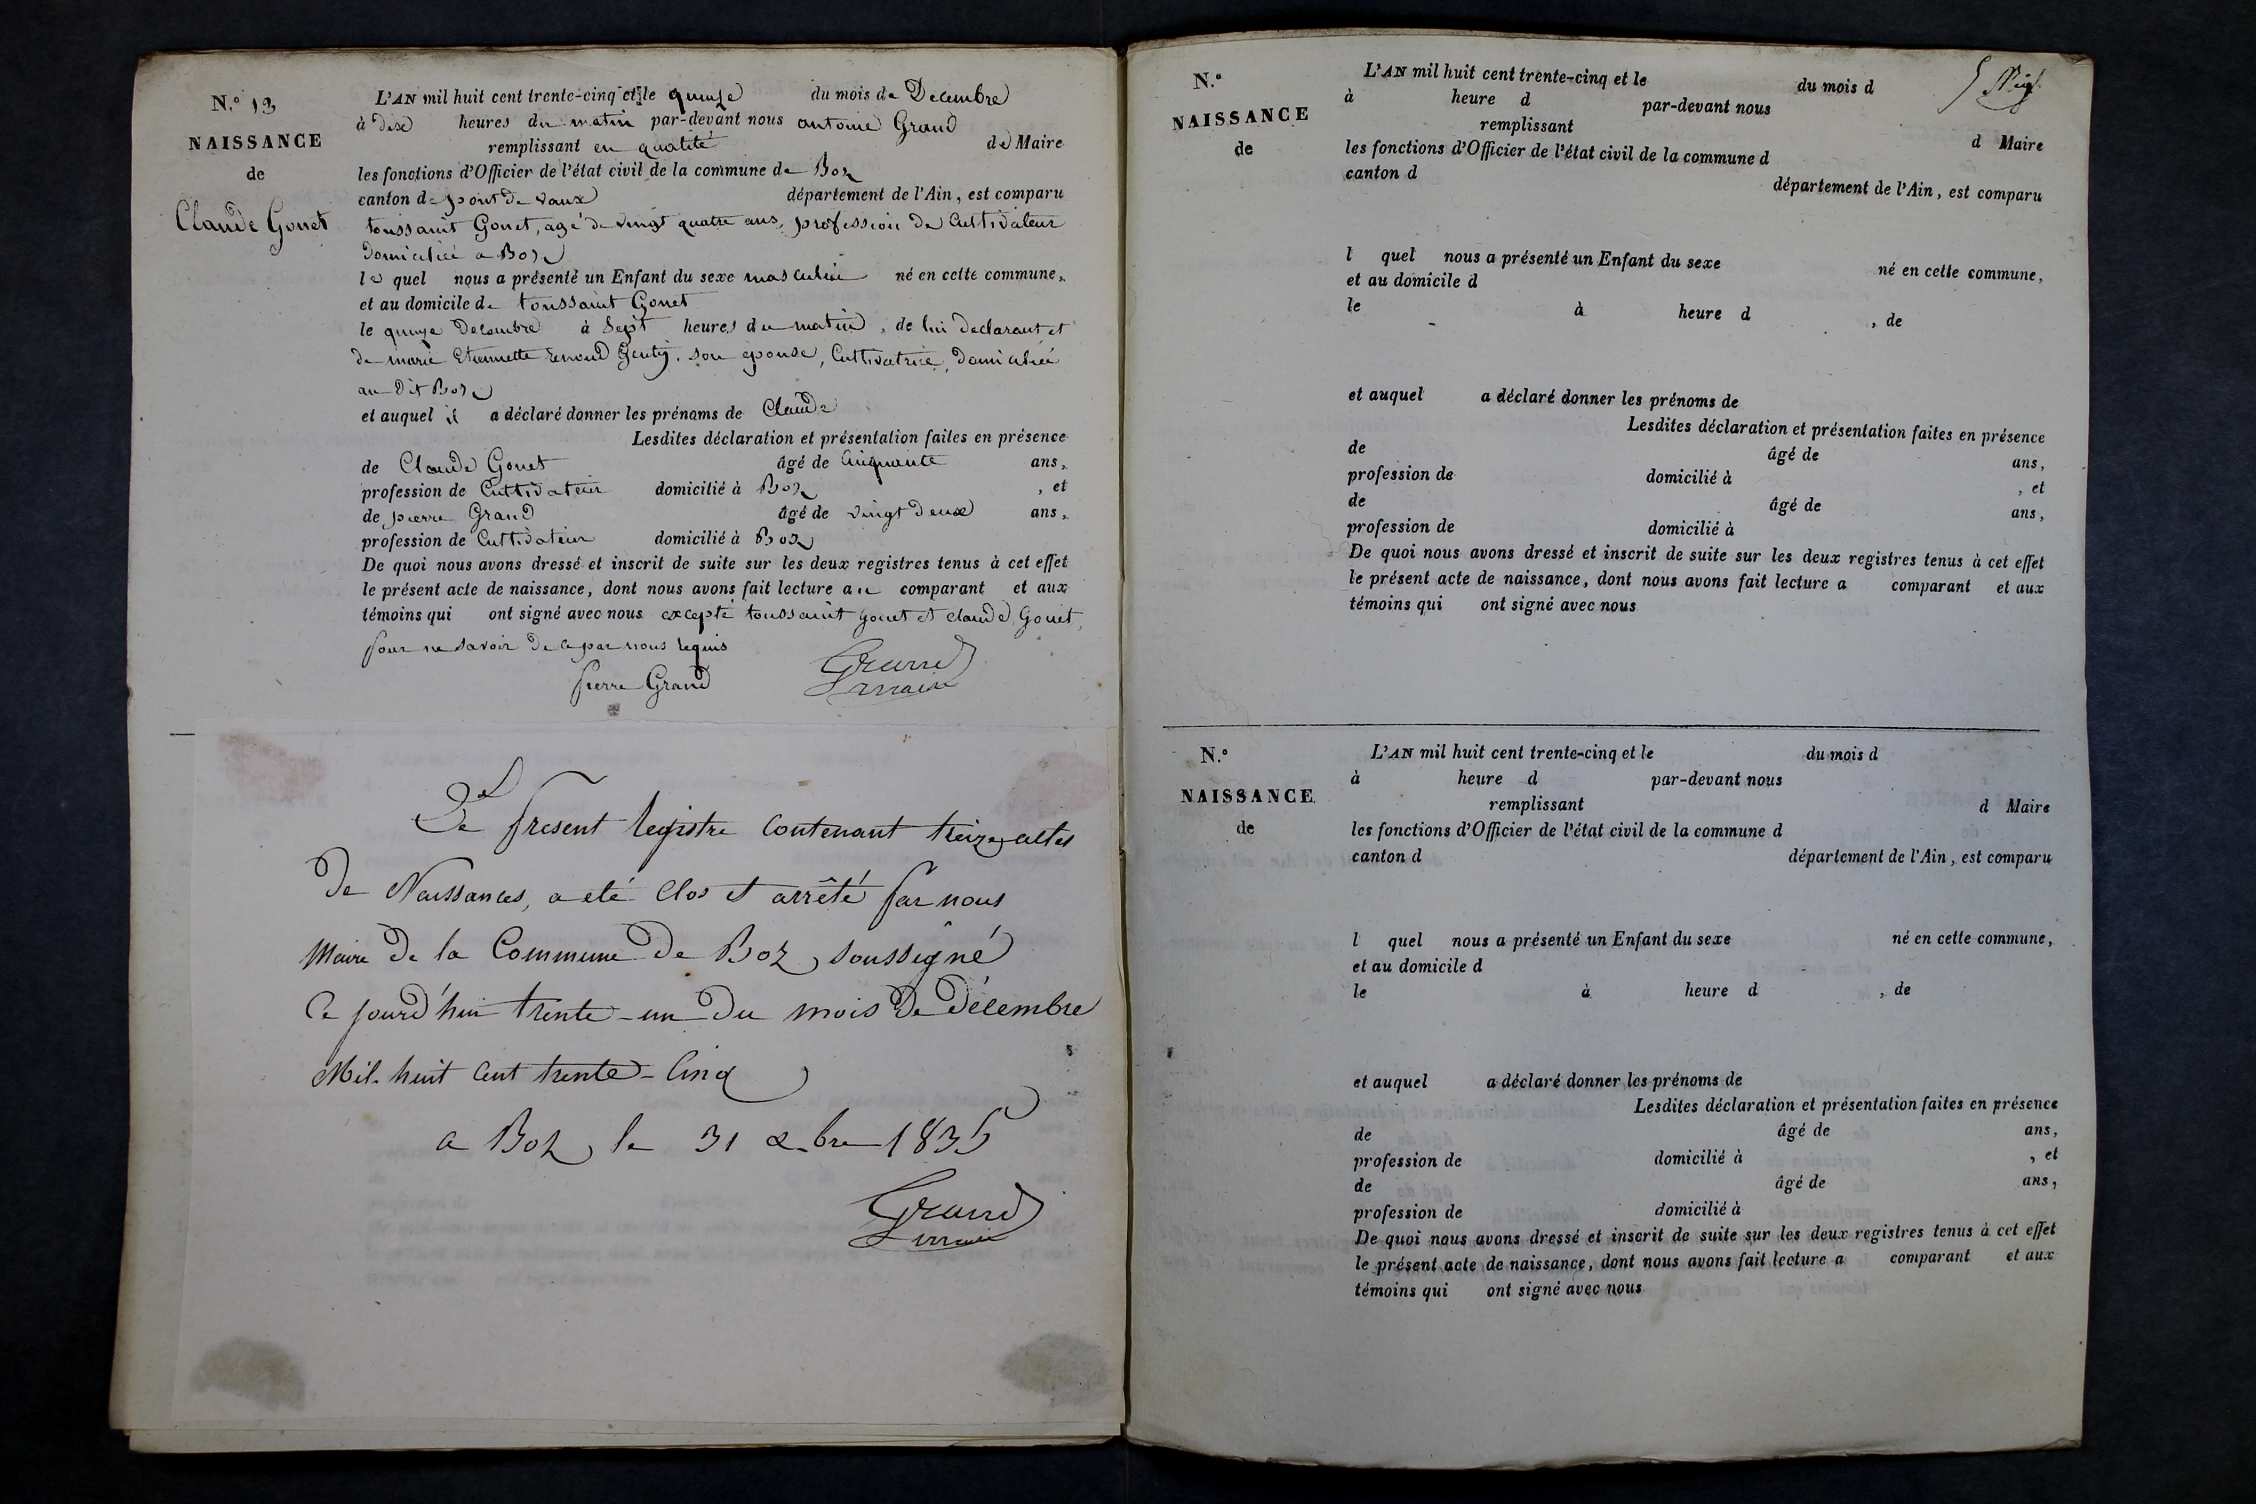 N.º 13
NAISSANCE
de
Claude Gonet
L'AN mil huit cent trente-cinq et le quinze du mois de Decembre
à dix heures du matin par-devant nous antoine Grand
remplissant en qualité de Maire
les fonctions d'Officier de l'état civil de la commune de Boz
canton de pont de vaux département de l'Ain, est comparu
toussaint Gonet, agé de vingt quatre ans, profession de Cultivateur
domicilié a Boz
le quel nous a présenté un Enfant du sexe masculin né en cette commune,
et au domicile de toussaint Gonet
le quinze Decembre à Sept heures du matin, de lui declarant et
de marie Etiennette Genty, son epouse, Cultivatrice, domiciliée
au dit Boz
et auquel il a déclaré donner les prénoms de Claude
Lesdites déclaration et présentation faites en présence
de Claude Gonet âgé de Cinquante ans,
profession de Cultivateur domicilié à Boz, et
de pierre Grand âgé de vingt deux ans,
profession de Cultivateur domicilié à Boz
De quoi nous avons dressé et inscrit de suite sur les deux registres tenus à cet effet
le présent acte de naissance, dont nous avons fait lecture au comparant et aux
témoins qui ont signé avec nous excepté toussaint gonet et claude Gonet,
pour ne savoir de ce par nous requis
pierre Grand Grand
maire
Le present registre contenant treize actes
de Naissances, a eté clos et arrêté par nous
Maire de la Commune de Boz, soussigné
Ce jourd'hui trente-un du mois de décembre
Mil-huit cent trente-Cinq
a Boz, le 31 xbre 1835
Grand
maire
N.º
NAISSANCE
de
L'AN mil huit cent trente-cinq et le du mois d
à heure d par-devant nous
remplissant d Maire
les fonctions d'Officier de l'état civil de la commune d
canton d département de l'Ain, est comparu
l quel nous a présenté un Enfant du sexe né en cette commune,
et au domicile d
le à heure d , de
et auquel a déclaré donner les prénoms de
Lesdites déclaration et présentation faites en présence
de âgé de ans,
profession de domicilié à , et
de âgé de ans,
profession de domicilié à
De quoi nous avons dressé et inscrit de suite sur les deux registres tenus à cet effet
le présent acte de naissance, dont nous avons fait lecture a comparant et aux
témoins qui ont signé avec nous
N.º
NAISSANCE
de
L'AN mil huit cent trente-cinq et le du mois d
à heure d par-devant nous
remplissant d Maire
les fonctions d'Officier de l'état civil de la commune d
canton d département de l'Ain, est comparu
l quel nous a présenté un Enfant du sexe né en cette commune,
et au domicile d
le à heure d , de
et auquel a déclaré donner les prénoms de
Lesdites déclaration et présentation faites en présence
de âgé de ans,
profession de domicilié à , et
de âgé de ans,
profession de domicilié à
De quoi nous avons dressé et inscrit de suite sur les deux registres tenus à cet effet
le présent acte de naissance, dont nous avons fait lecture a comparant et aux
témoins qui ont signé avec nous